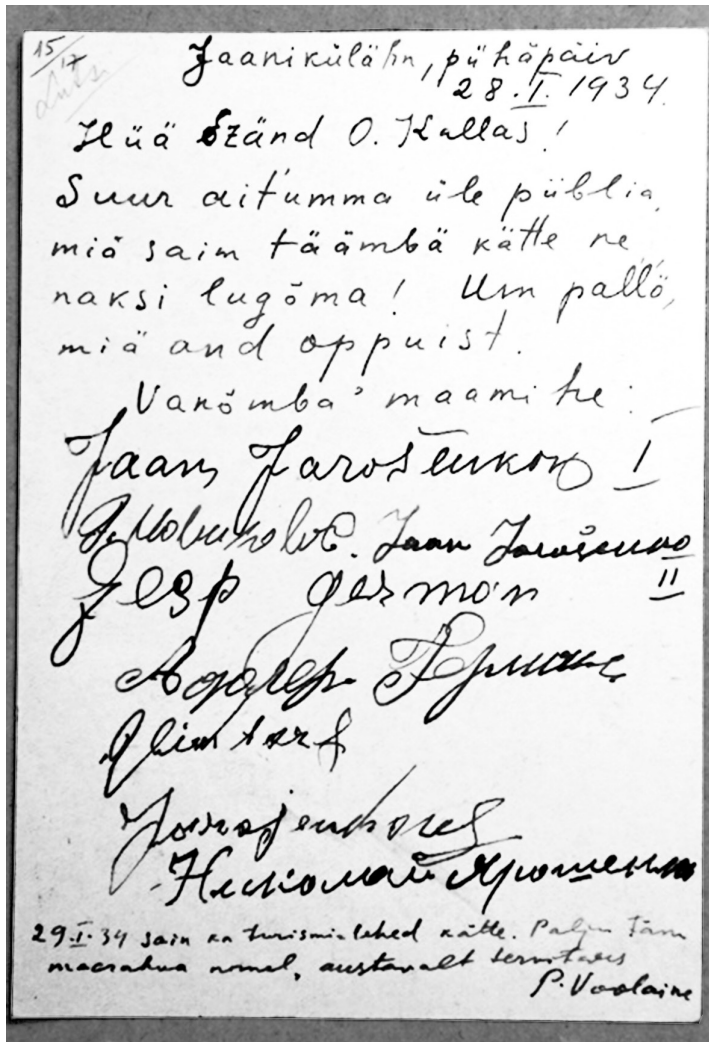 15/17
Lutsi
Jaanikülähn, pühäpäiv
28.I.1934.
Hüä Szänd O. Kallas!
Suur aitumma üle piiblia,
miä saim täämbä kätte ne
naksi lugõma! Um pallo,
miä and oppuist.
Vanõmba' maamihe:
Jaan Jarošenkov I
Jaan Jarošenko
II
Jesp German
Николай Ярошенко
29.I.34 sain ka turismilehed kätte. Palju tänu
maarahva nimel, austavalt tervitades
P. Voolaine